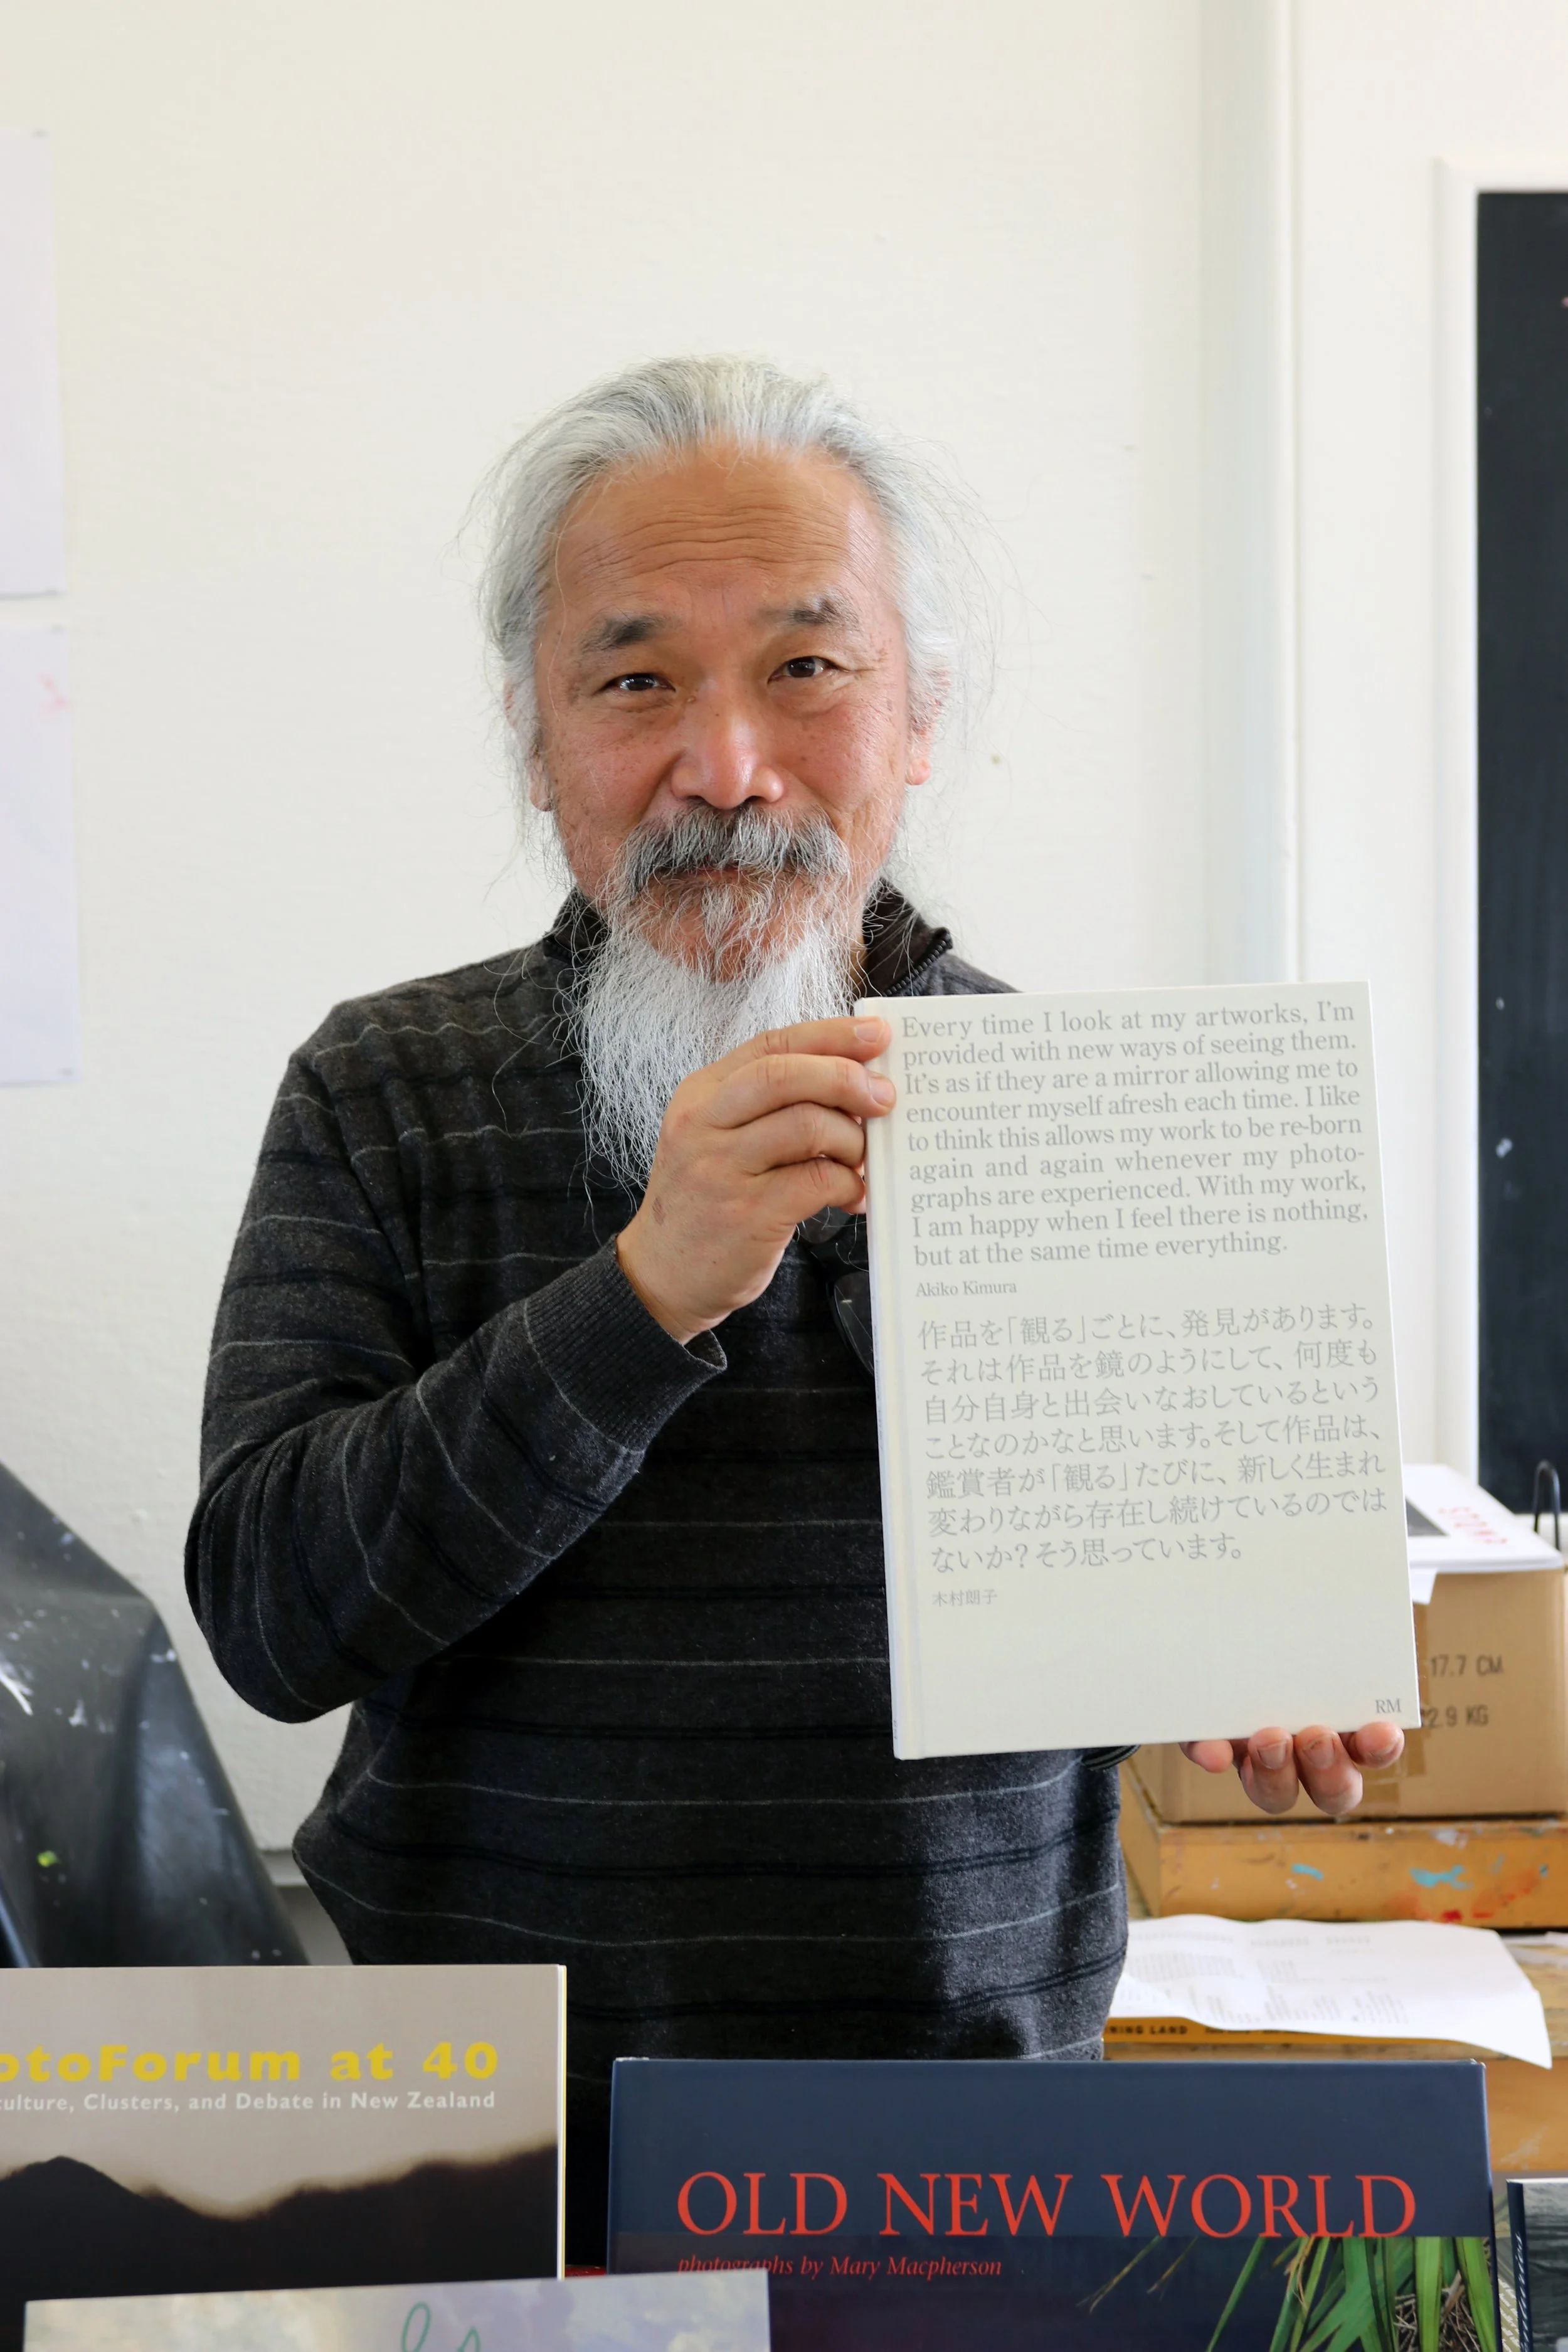 Every time I look at my artworks, I’m
provided with new ways of seeing them.
It’s as if they are a mirror allowing me to
encounter myself afresh each time. I like
to think this allows my work to be re-born
again and again whenever my photo-
graphs are experienced. With my work,
I am happy when I feel there is nothing,
but at the same time everything.
Akiko Kimura
作品を「観る」ごとに、発見があります。
それは作品を鏡のようにして、何度も
自分自身と出会いなおしているという
ことなのかなと思います。そして作品は、
鑑賞者が「観る」たびに、新しく生まれ
変わりながら存在し続けているのでは
ないか？そう思っています。
木村朗子
RM
17.7 CM
2.9 KG
NING LAND
otoForum at 40
culture, Clusters, and Debate in New Zealand
OLD NEW WORLD
photographs by Mary Macpherson